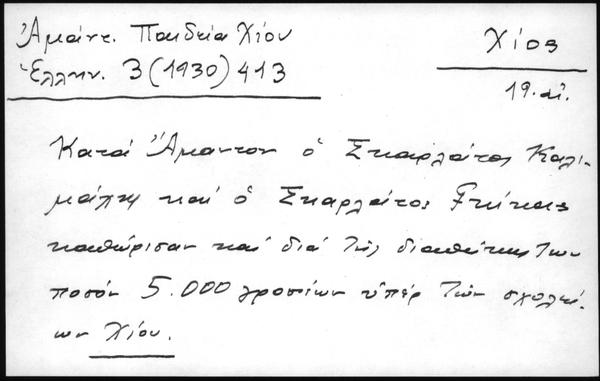 Ἀμάντ. Παιδεία Χίου
Ἑλλην. 3 (1930) 413
Χίος
19. αἰ.
Κατά Ἄμαντον ὁ Σκαρλάτος Καλι-
μάχης καί ὁ Σκαρλάτος Γκίκας
καθώρισαν καί διά τῆς διαθήκης των
ποσόν 5.000 γροσίων ὑπέρ τῶν σχολεί-
ων Χίου.